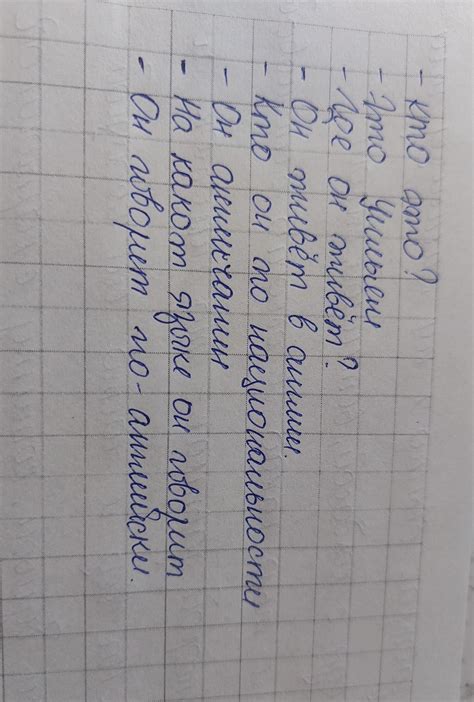 - Кто это?
- Это Уильям
- Где он живёт?
- Он живёт в англии.
- Кто он по национальности
- Он англичанин
- На каком языке он говорит
- Он говорит по-английски.